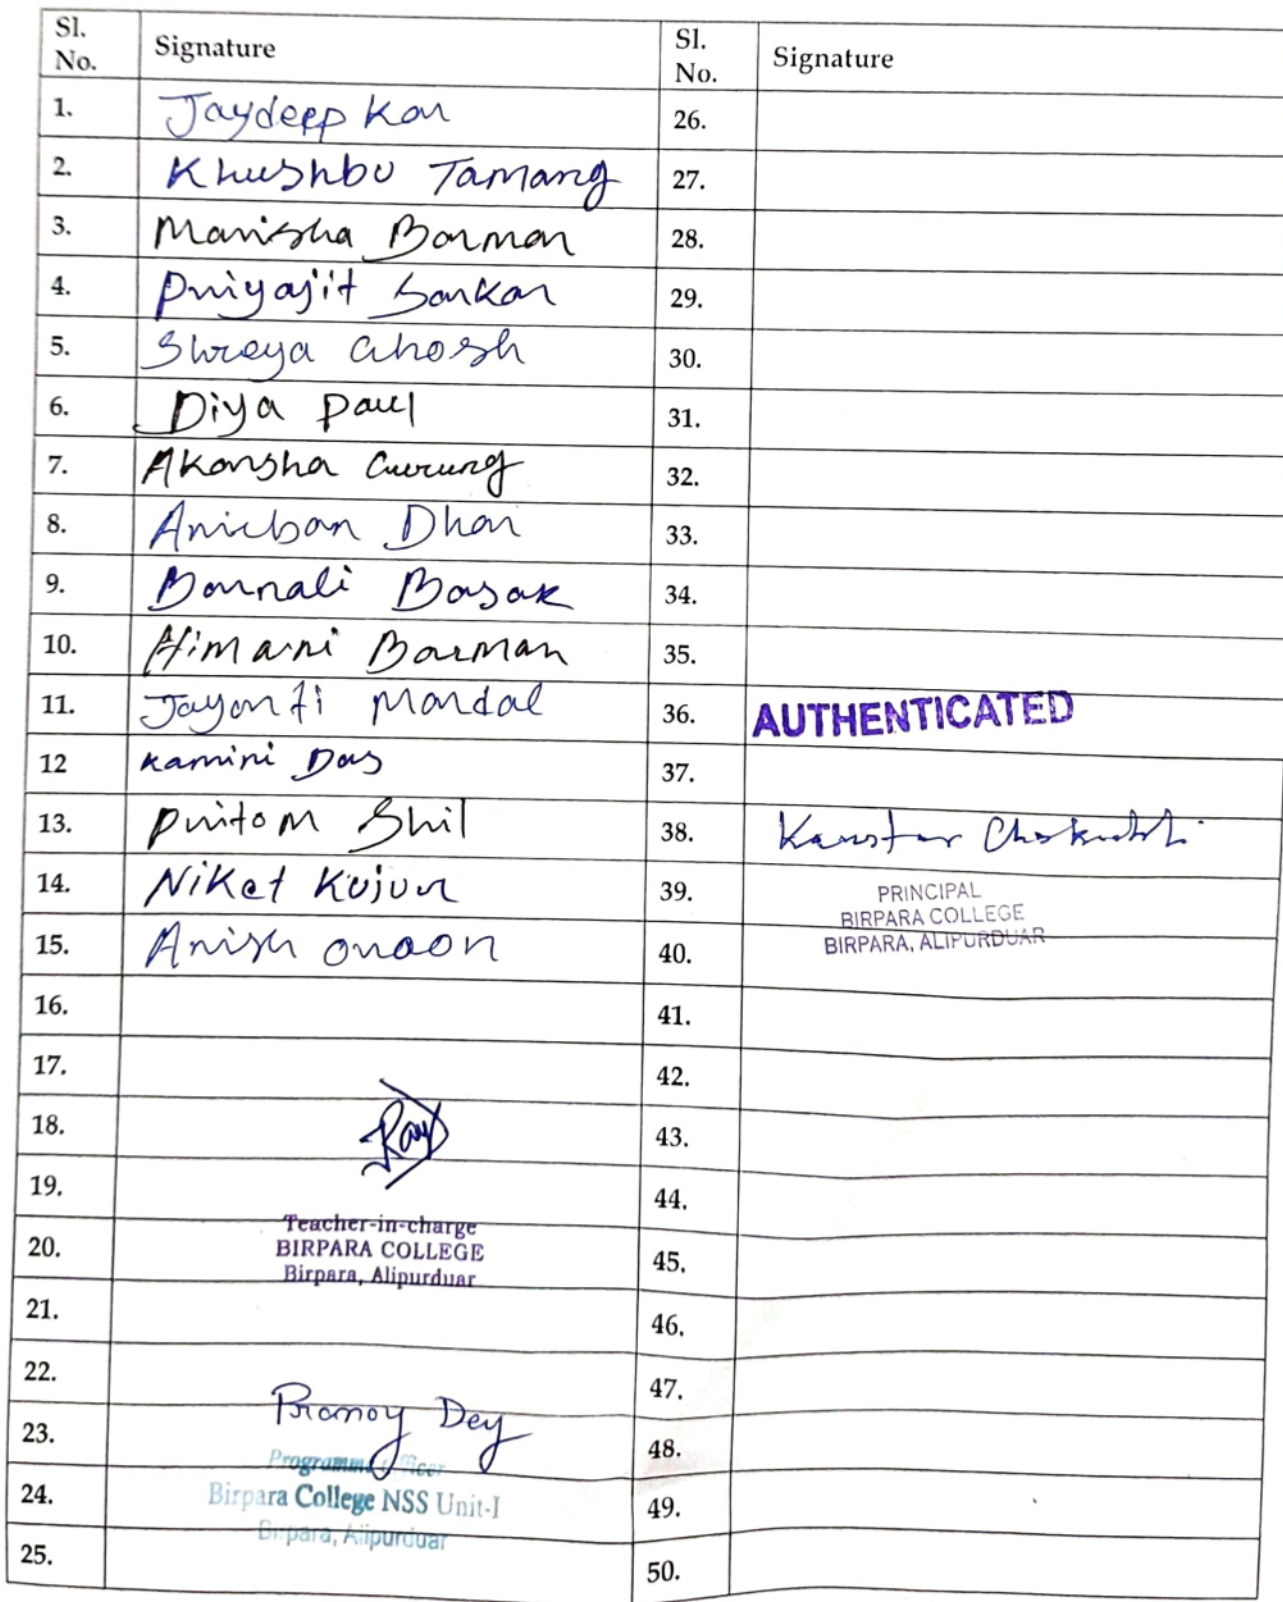 Sl. No. Signature Sl. No. Signature
1. Jaydeep Kar 26.
2. Khushbu Tamang 27.
3. Manisha Barman 28.
4. Priyajit Sarkar 29.
5. Shreya Ghosh 30.
6. Diya Paul 31.
7. Akansha Gurung 32.
8. Anirban Dhar 33.
9. Barnali Basak 34.
10. Himani Barman 35.
11. Jayanti Mandal 36. AUTHENTICATED
12 Kamini Das 37.
13. Pritom Shil 38.
14. Niket Kujur 39. PRINCIPAL
BIRPARA COLLEGE
15. Anish Oraon 40. BIRPARA, ALIPURDUAR
16. 41.
17. 42.
18. Ray 43.
19. 44.
Teacher-in-charge
20. BIRPARA COLLEGE 45.
Birpara, Alipurduar
21. 46.
22. 47.
Pranoy Dey
23. 48.
Programme Officer
24. Birpara College NSS Unit-I 49.
Birpara, Alipurduar
25. 50.